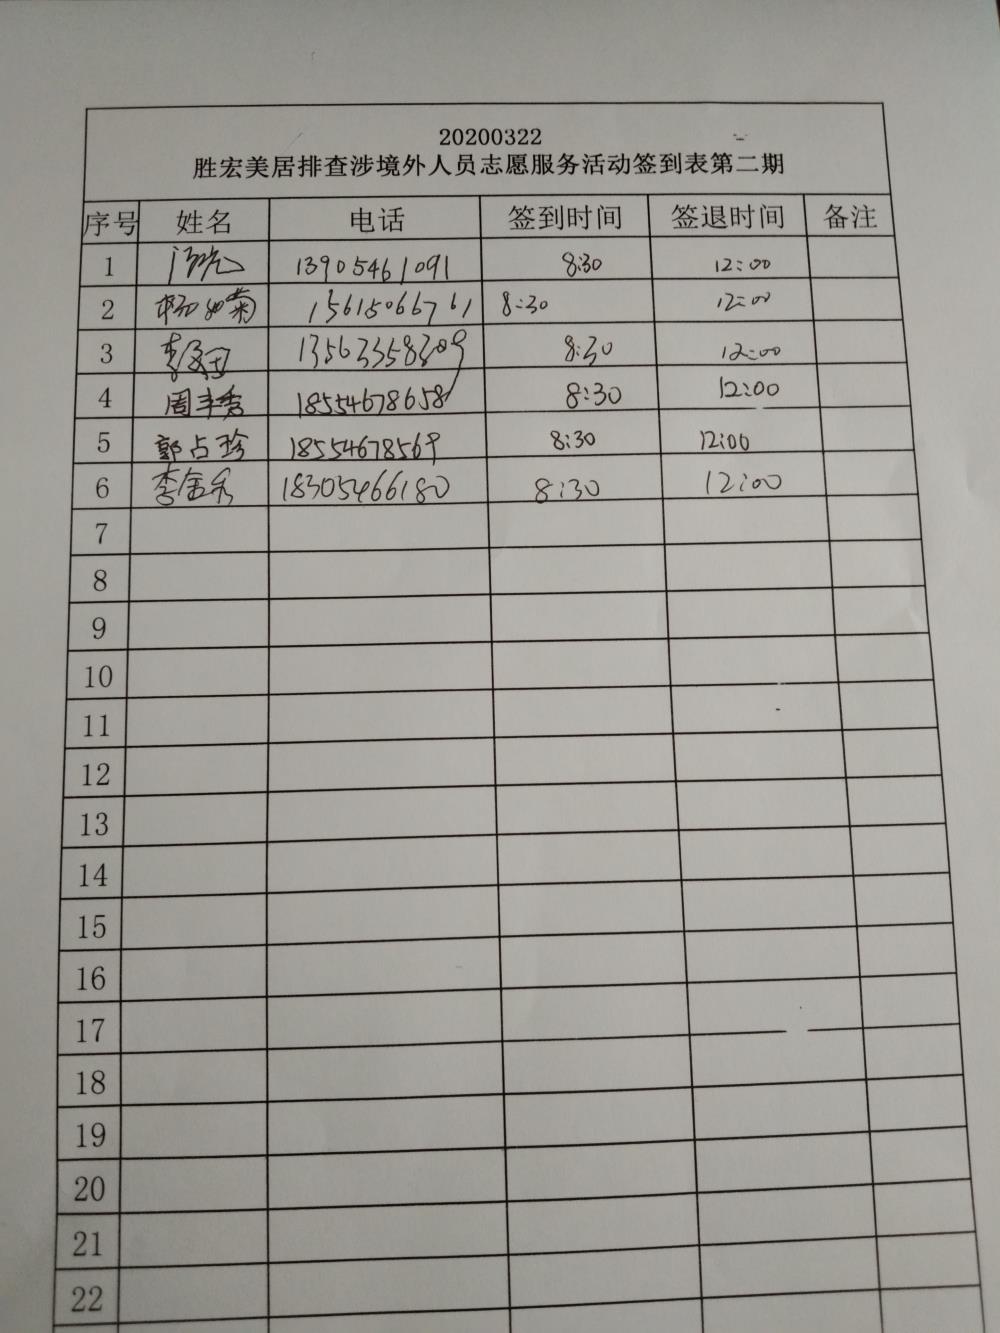 20200322
胜宏美居排查涉境外人员志愿服务活动签到表第二期
序号 姓名 电话 签到时间 签退时间 备注
1 13905461091 8:30 12:00
2 杨如菊 15615066761 8:30 12:00
3 13563358309 8:30 12:00
4 周丰秀 18554678658 8:30 12:00
5 郭占珍 18554678569 8:30 12:00
6 李金秀 18305466180 8:30 12:00
7
8
9
10
11
12
13
14
15
16
17
18
19
20
21
22